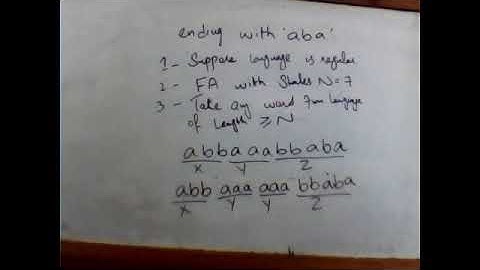 ending with 'aba'
1 - Suppose language is regular
2 - FA with States N = 7
3 - Take any word from language
of length ≥ N
abba aaa bbaba
x y z
abb aaa aaa bbaba
x y y z